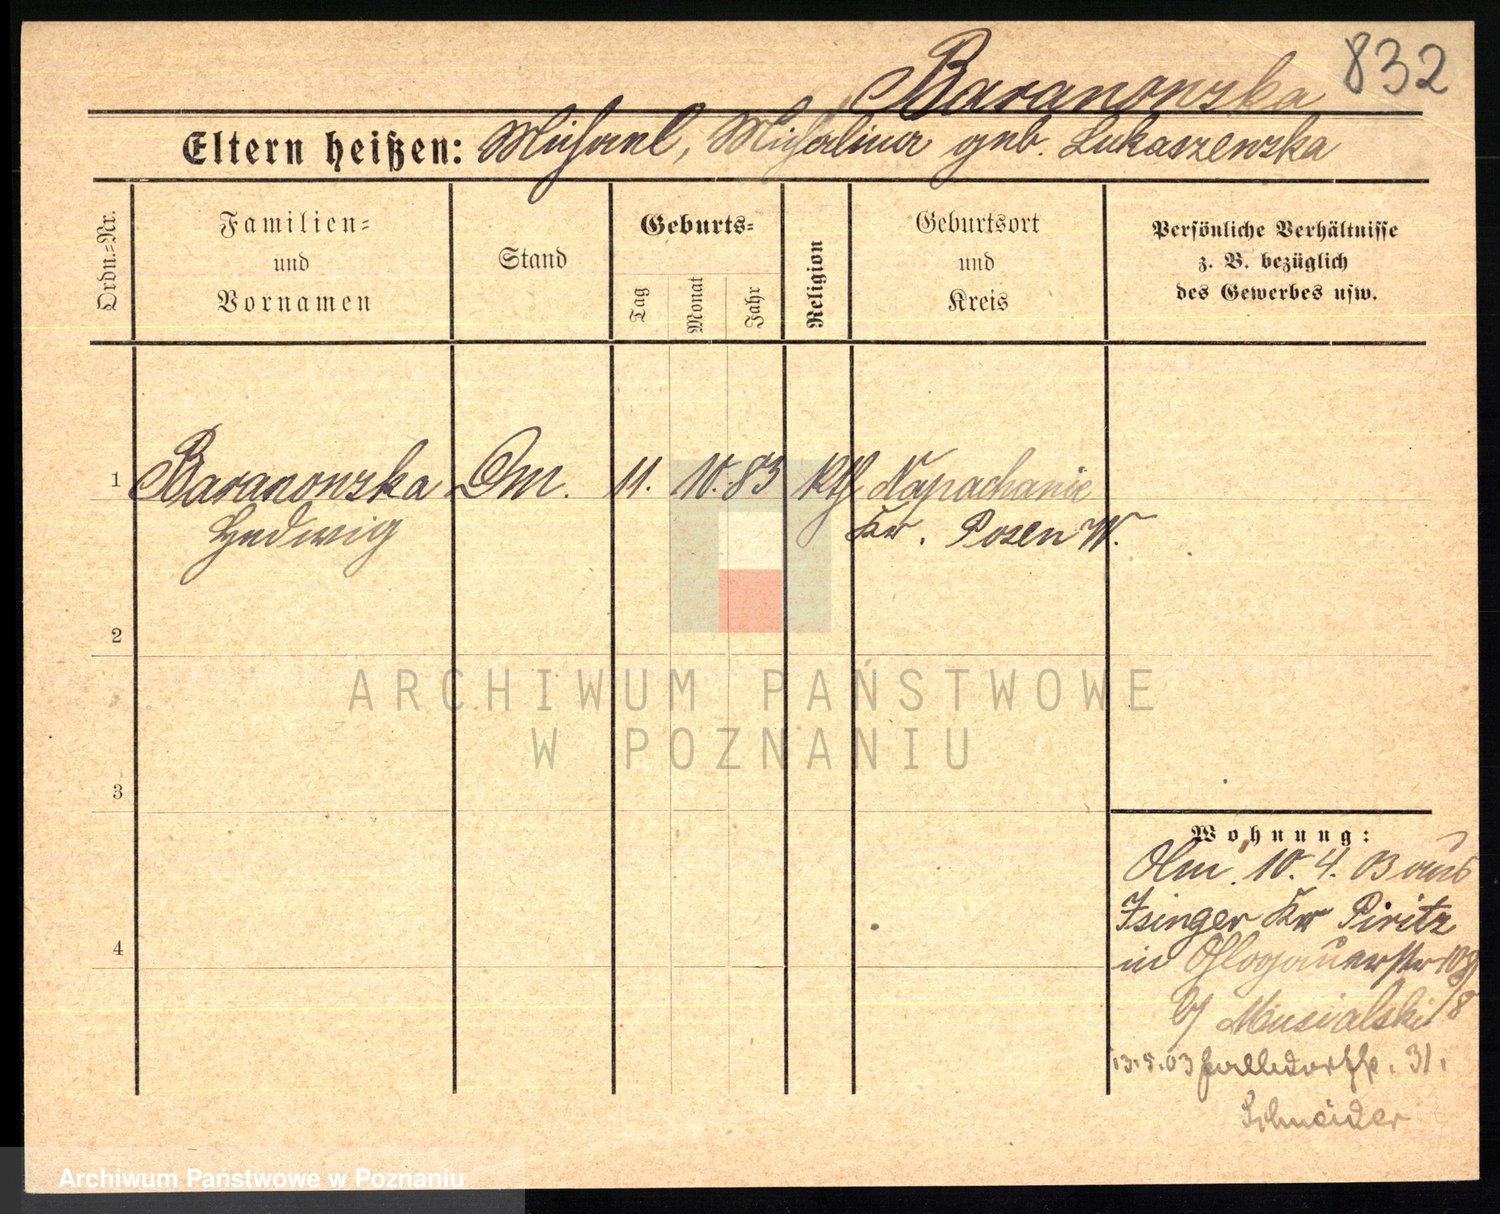 832
Baranowska
Eltern heißen: Michael, Michalina geb. Lukaszewska
Ordn.-Nr.
Familien-
und
Vornamen
Stand
Geburts-
Tag
Monat
Jahr
Religion
Geburtsort
und
Kreis
Persönliche Verhältnisse
z. B. bezüglich
des Gewerbes usw.
1 Baranowska Dm. 11. 10. 83 kth Napachanie
Hedwig Kr. Posen W.
2
3
4
Wohnung:
10. 4. 03 aus
Isinger Kr Piritz
in Glogauerstr 108/8
b/ Musialski
13.5.03 31.
Schneider
ARCHIWUM PAŃSTWOWE
W POZNANIU
Archiwum Państwowe w Poznaniu